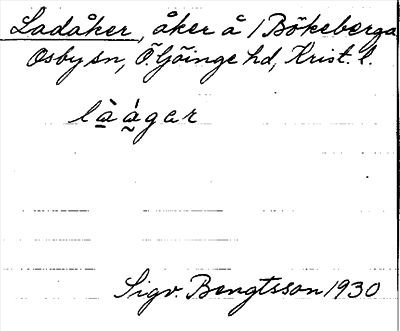 Ladåker, åker å 1 Bökeberga
Osby sn, Ö. Göinge hd, Krist. l.
là̠á̰gar
Sigv. Bengtsson 1930